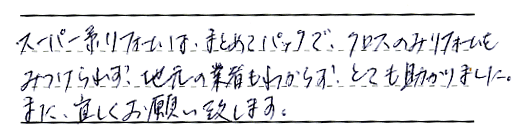 スーパー系リフォームは、まとめてパックで、クロスのみリフォームも
みつけられず、地元の業者もわからず、とても助かりました。
また、宜しくお願い致します。